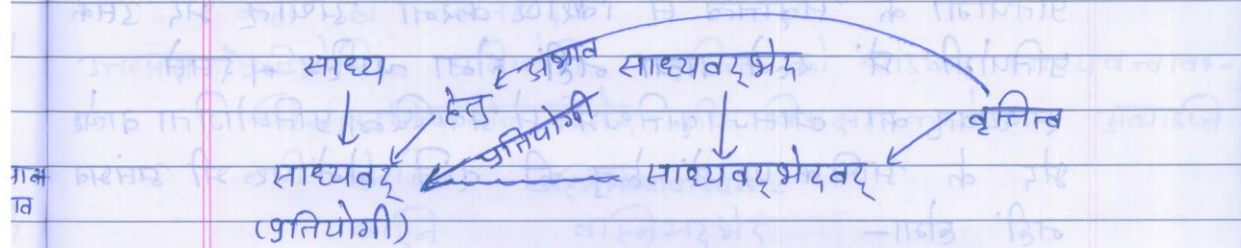 साध्य हेतु अभाव साध्यवद्भेद
प्रतियोगी वृत्तित्व
साध्यवद् साध्यवद्भेदवद्
(प्रतियोगी)